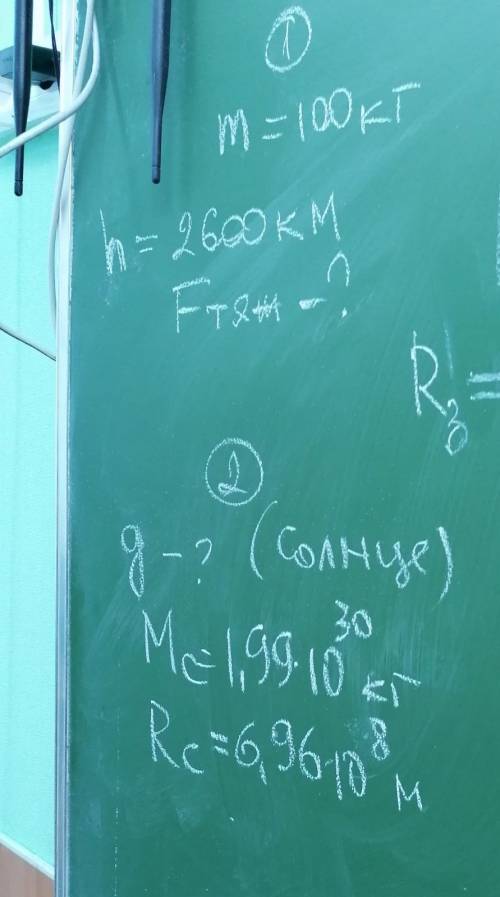 1
m = 100 кг
h = 2600 км
Fтяж - ?
R₃ =
2
g - ? (Солнце)
Mc = 1,99·10³⁰ кг
Rc = 6,96·10⁸ м